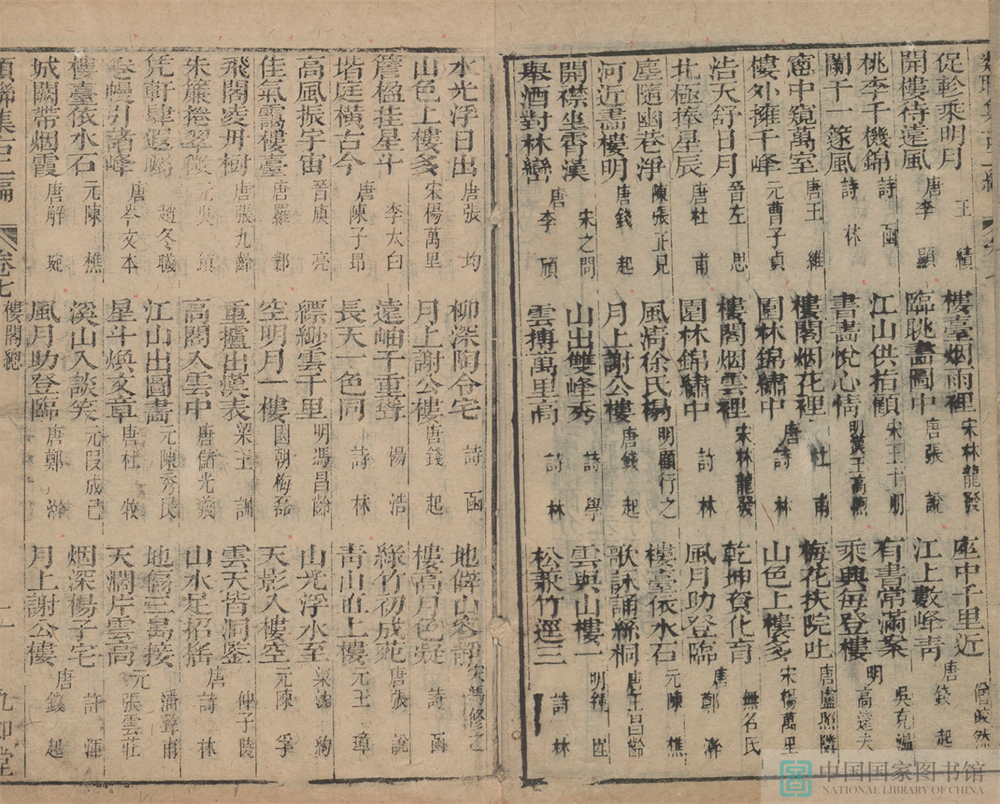 促軫乘明月 王績 樓臺烟雨裡 宋林龍發 座中千里近
開樓待遠風 唐李顒 臨眺畫圖中 唐張說 江上數峰青 唐錢起
桃李千機錦 詩函 江山供指顧 宋王十朋 有書常滿案 吳克溫
闌干一篴風 詩林 書畫悅心情 乘興每登樓 明高遠夫
窗中窺萬室 唐王維 樓閣烟花裡 唐杜甫 梅花扶院吐 唐盧照隣
樓外擁千峰 元曹子貞 園林錦繡中 唐詩林 山色上樓多 宋楊萬里
浩天舒日月 晉左思 樓閣烟雲裡 宋林龍發 乾坤資化育 無名氏
北極捧星辰 唐杜甫 園林錦繡中 詩林 風月助登臨 唐鄭
塵隨幽巷淨 陳張正見 風清徐氏榻 明顧行之 樓臺依水石 元陳樵
河近畵樓明 唐錢起 月上謝公樓 唐錢起 歌詠誦絲桐 唐王昌齡
開襟坐霄漢 宋之問 山出雙峰秀 詩學 雲與山樓一
舉酒對林巒 唐李頎 雲摶萬里高 詩林 松兼竹逕三 詩林
水光浮日出 唐張均 柳深陶令宅 詩函 地僻山容靜 宋馮修之
山色上樓多 宋楊萬里 月上謝公樓 唐錢起 樓高月色凝 詩函
簷楹挂星斗 李太白 遠岫千重翠 楊浩 綠竹初成苑 唐張說
堦庭橫古今 唐陳子昂 長天一色同 詩林 靑山直上樓 元王璋
高風振宇宙 晉庾亮 縹緲雲千里 明馮昌齡 山光浮水至 梁沈約
佳氣靄樓臺 唐羅鄴 空明月一樓 國朝梅磊 天影入樓空 元陳孚
飛閣凌丹樹 唐張九齡 重櫨出漢表 梁王訓 雲天皆洞鑒 仲子陵
朱簾捲翠微 高閣入雲中 唐儲光羲 山水足招搖 唐詩林
凭軒肆遐矚 趙冬曦 江山出圖畵 元陳秀民 地僻三島接 潘聲甫
卷幔引諸峰 唐岑文本 星斗煥文章 唐杜牧 天濶片雲高 元張雲壯
樓臺依水石 元陳樵 溪山入談笑 元段成己 烟深楊子宅 唐許渾
城闕帶烟霞 唐解琬 風月助登臨 唐鄭 月上謝公樓 唐錢起
類聯集古二編 卷七 樓閣總 十一 九卽堂
中国国家图书馆
NATIONAL LIBRARY OF CHINA